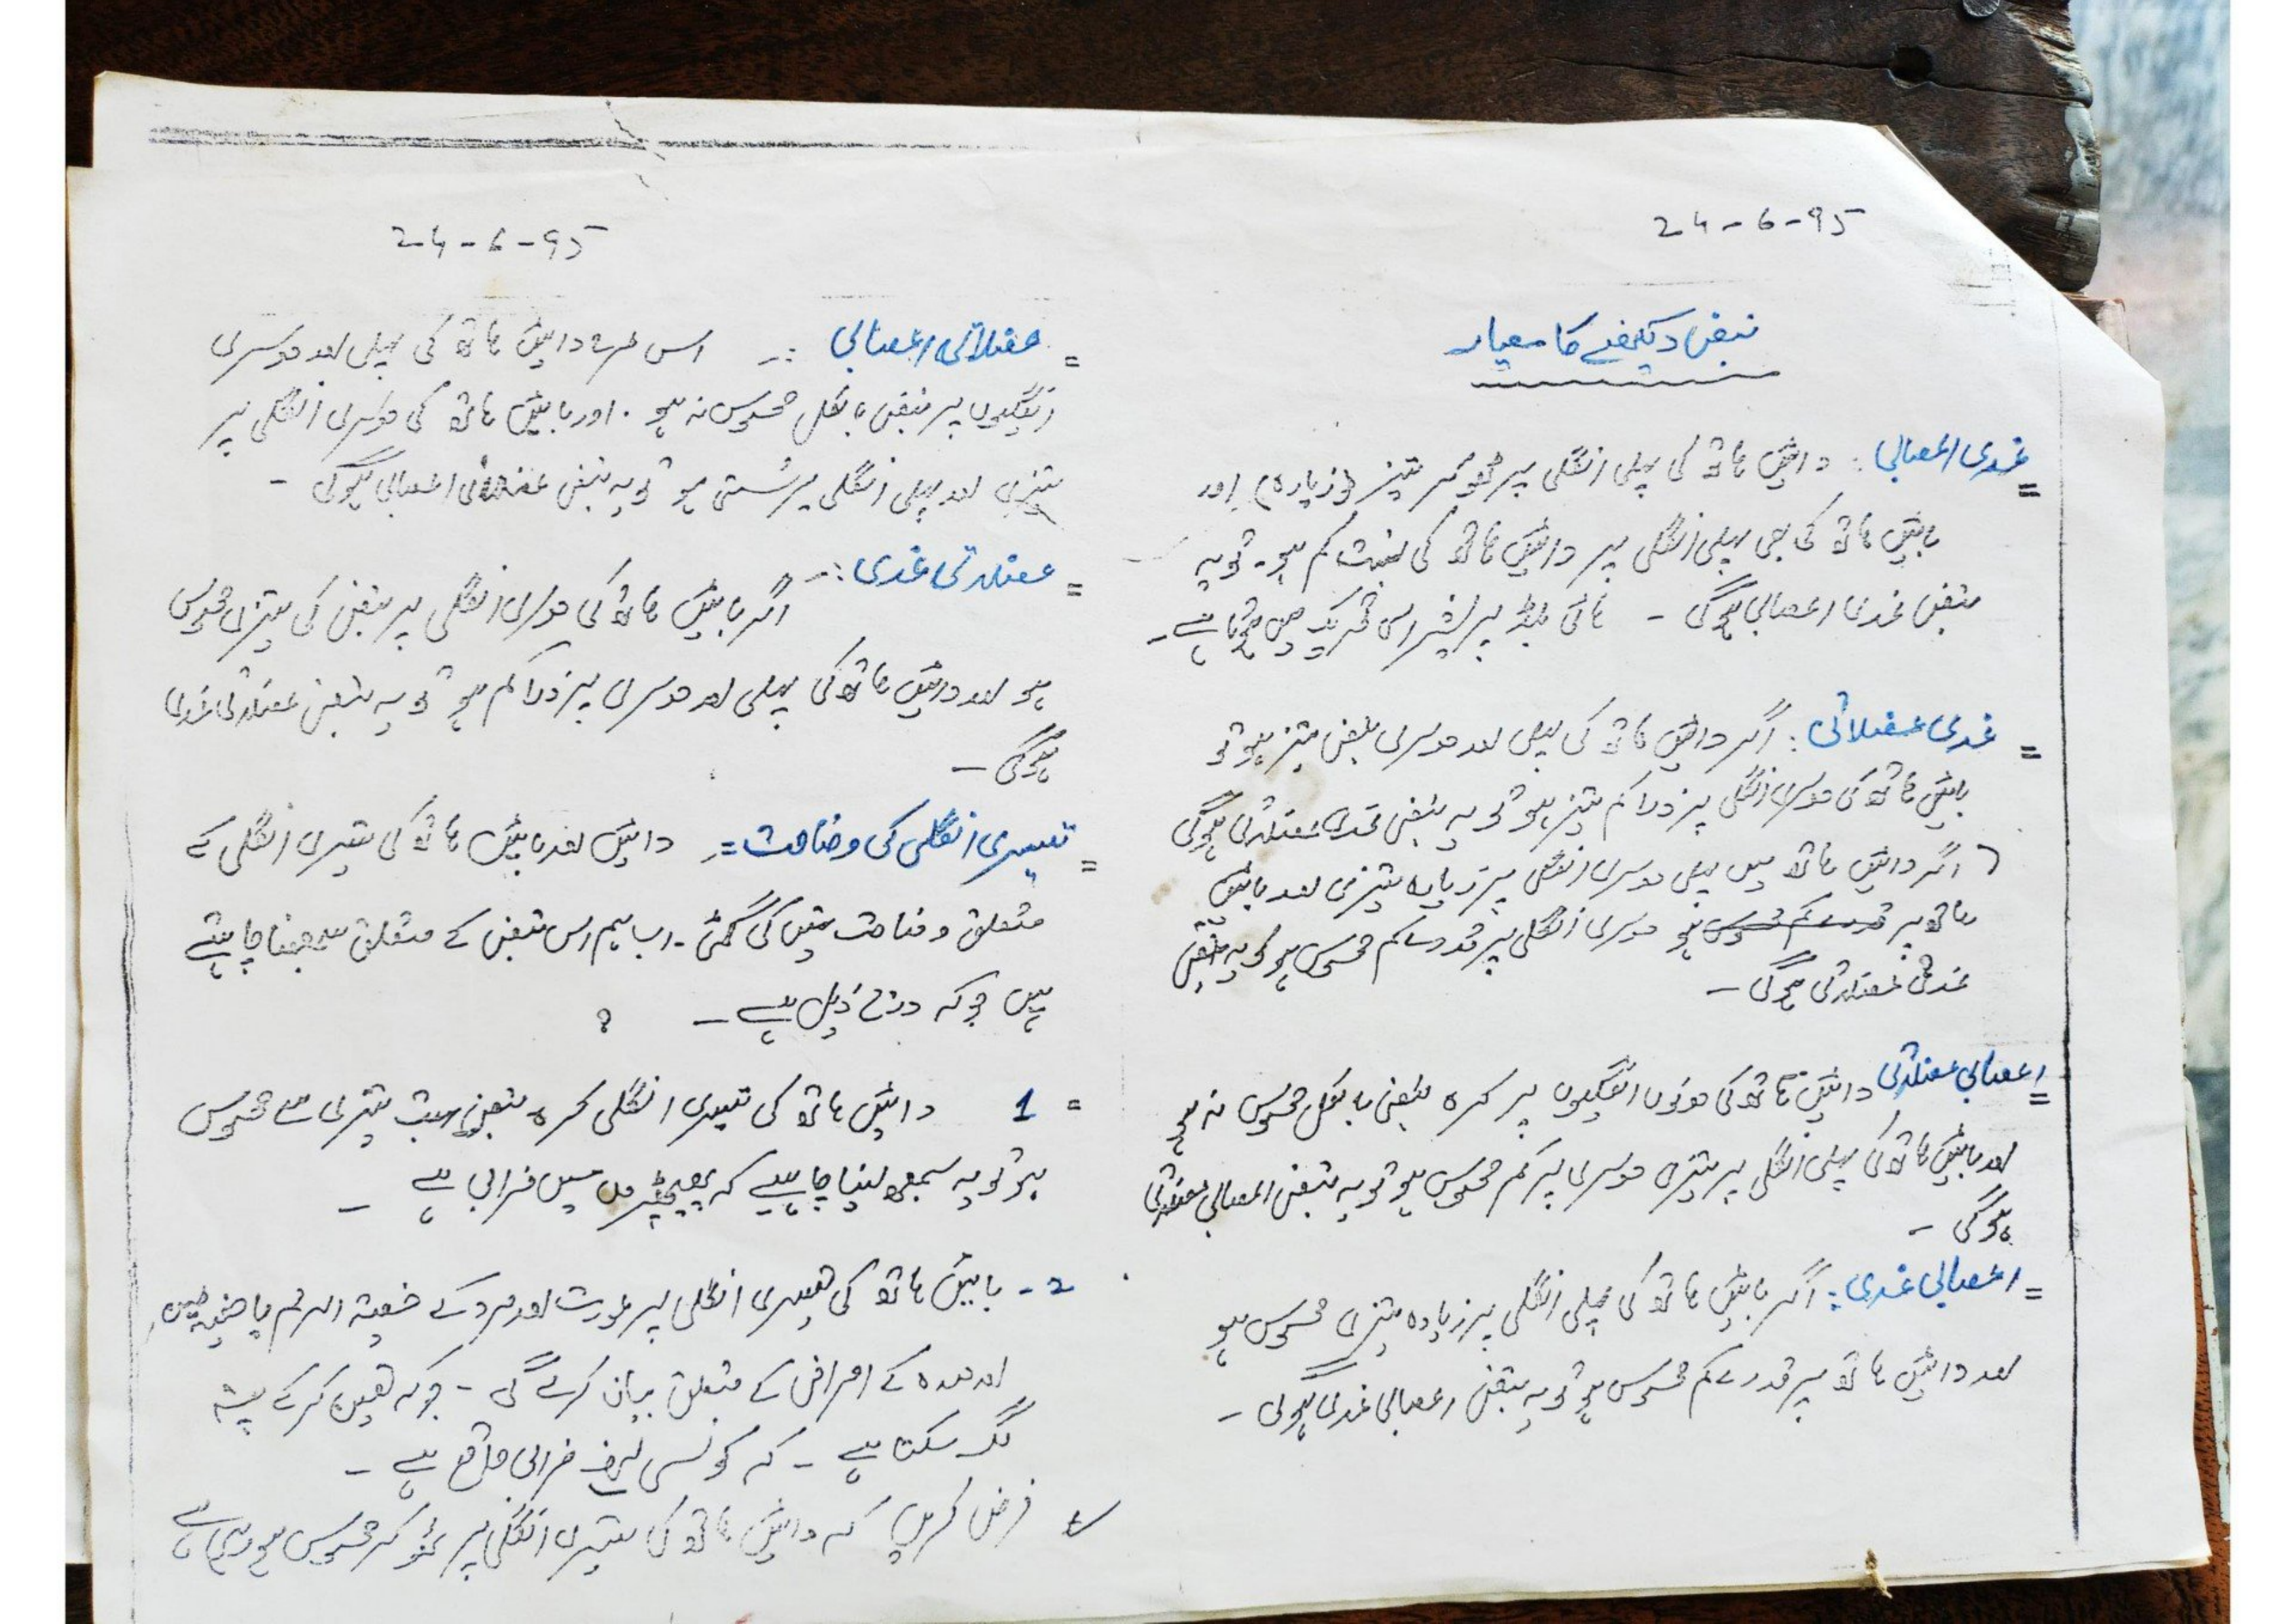 24-6-95
نبض دیکھنے کا معیار
= غدی اعصابی : دائیں ہاتھ کی پہلی انگلی پر ٹھوکر تیز (زیادہ) اور
بائیں ہاتھ کی بھی پہلی انگلی پر دائیں ہاتھ کی نسبت کم ہو۔ تو یہ
نبض غدی اعصابی ہوگی - ہائی بلڈ پریشر اسی تحریک میں ہوتا ہے -
= غدی عضلاتی : اگر دائیں ہاتھ کی پہلی اور دوسری نبض تیز ہو تو
بائیں ہاتھ کی دوسری انگلی پر ذرا کم تیز ہو تو یہ نبض غدی عضلاتی ہوگی
اگر دائیں ہاتھ میں پہلی دوسری انگلی پر زیادہ تیزی اور بائیں
ہاتھ پر قدرے کم محسوس ہو دوسری انگلی پر قدرے کم محسوس ہو تو یہ نبض
غدی عضلاتی ہوگی -
= اعصابی عضلاتی دائیں ہاتھ کی دونوں انگلیوں پر نبض بالکل محسوس نہ ہو
اور بائیں ہاتھ کی پہلی انگلی پر تیزی دوسری پر کم محسوس ہو تو یہ نبض اعصابی عضلاتی
ہوگی -
= اعصابی غدی : اگر بائیں ہاتھ کی پہلی انگلی پر زیادہ تیزی محسوس ہو
اور دائیں ہاتھ پر قدرے کم محسوس ہو تو یہ نبض اعصابی غدی ہوگی -
24-6-95
= عضلاتی اعصابی :- اس طرح دائیں ہاتھ کی پہلی اور دوسری
انگلیوں پر نبض بالکل محسوس نہ ہو . اور بائیں ہاتھ کی دوسری انگلی پر
تیزی اور پہلی انگلی پر سستی ہو تو یہ نبض عضلاتی اعصابی ہوگی -
= عضلاتی غدی :- اگر بائیں ہاتھ کی دوسری انگلی پر نبض کی تیزی محسوس
ہو اور دائیں ہاتھ کی پہلی اور دوسری پر ذرا کم ہو تو یہ نبض عضلاتی غدی
ہوگی -
= تیسری انگلی کی وضاحت =- دائیں اور بائیں ہاتھ کی تیسری انگلی کے
متعلق وضاحت نہیں کی گئی - اب ہم اس نبض کے متعلق سمجھنا چاہتے
ہیں جو کہ درج ذیل ہے - ؟
= 1 دائیں ہاتھ کی تیسری انگلی نبض بہت تیزی سے محسوس
ہو تو یہ سمجھ لینا چاہیے کہ پھیپھڑوں میں خرابی ہے -
2- بائیں ہاتھ کی تیسری انگلی پر عورت اور مرد کے خصیۃ الرحم یا
اور معدہ کے امراض کے متعلق بیان کرے گی - جو کہ کر کے پتہ
لگ سکتا ہے - کہ کونسی طرف خرابی واقع ہے -
فرض کریں کہ دائیں ہاتھ کی تیسری انگلی پر ٹھوکر محسوس ہو رہی ہے